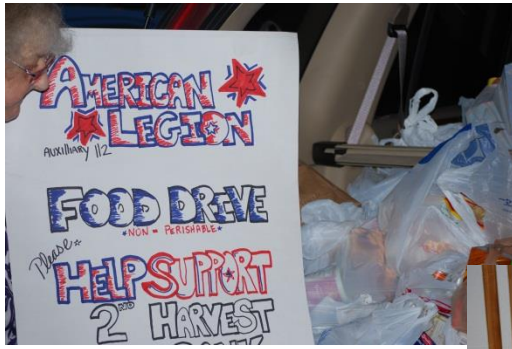 AMERICAN
LEGION
AUXILLIARY 112
FOOD DRIVE
*NON - PERISHABLE*
Please*
HELP SUPPORT
2ND HARVEST
BANK